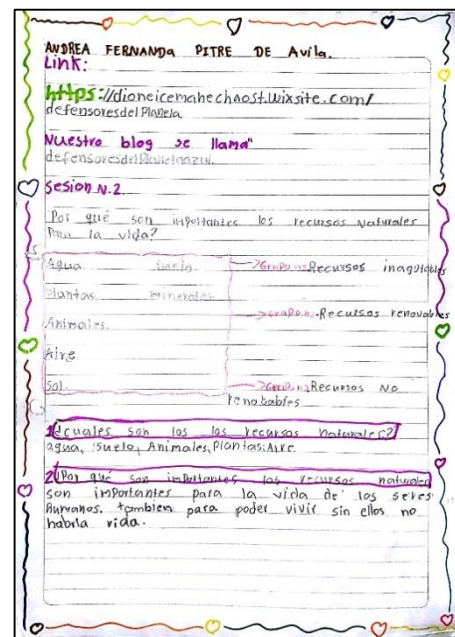 ANDREA FERNANDA PITRE DE Avila.
Link:
https://dioneicemahechaost.wixsite.com/
defensoresdelPlaneta
Nuestro blog se llama"
defensoresdelPlanetaazul.
Sesion N.2
Por qué son importantes los recursos naturales
Para la vida?
Agua suelo Recursos inagotables
Plantas minerales
Recursos renovables
Animales.
Aire
Sol. Recursos No
renobables
1 ¿cuales son los los recursos naturales?
agua, suelo, Animales, Plantas. Aire.
2 ¿Por qué son importantes los recursos naturales
son importantes para la vida de los seres
humanos. tambien para poder vivir sin ellos no
habria vida.